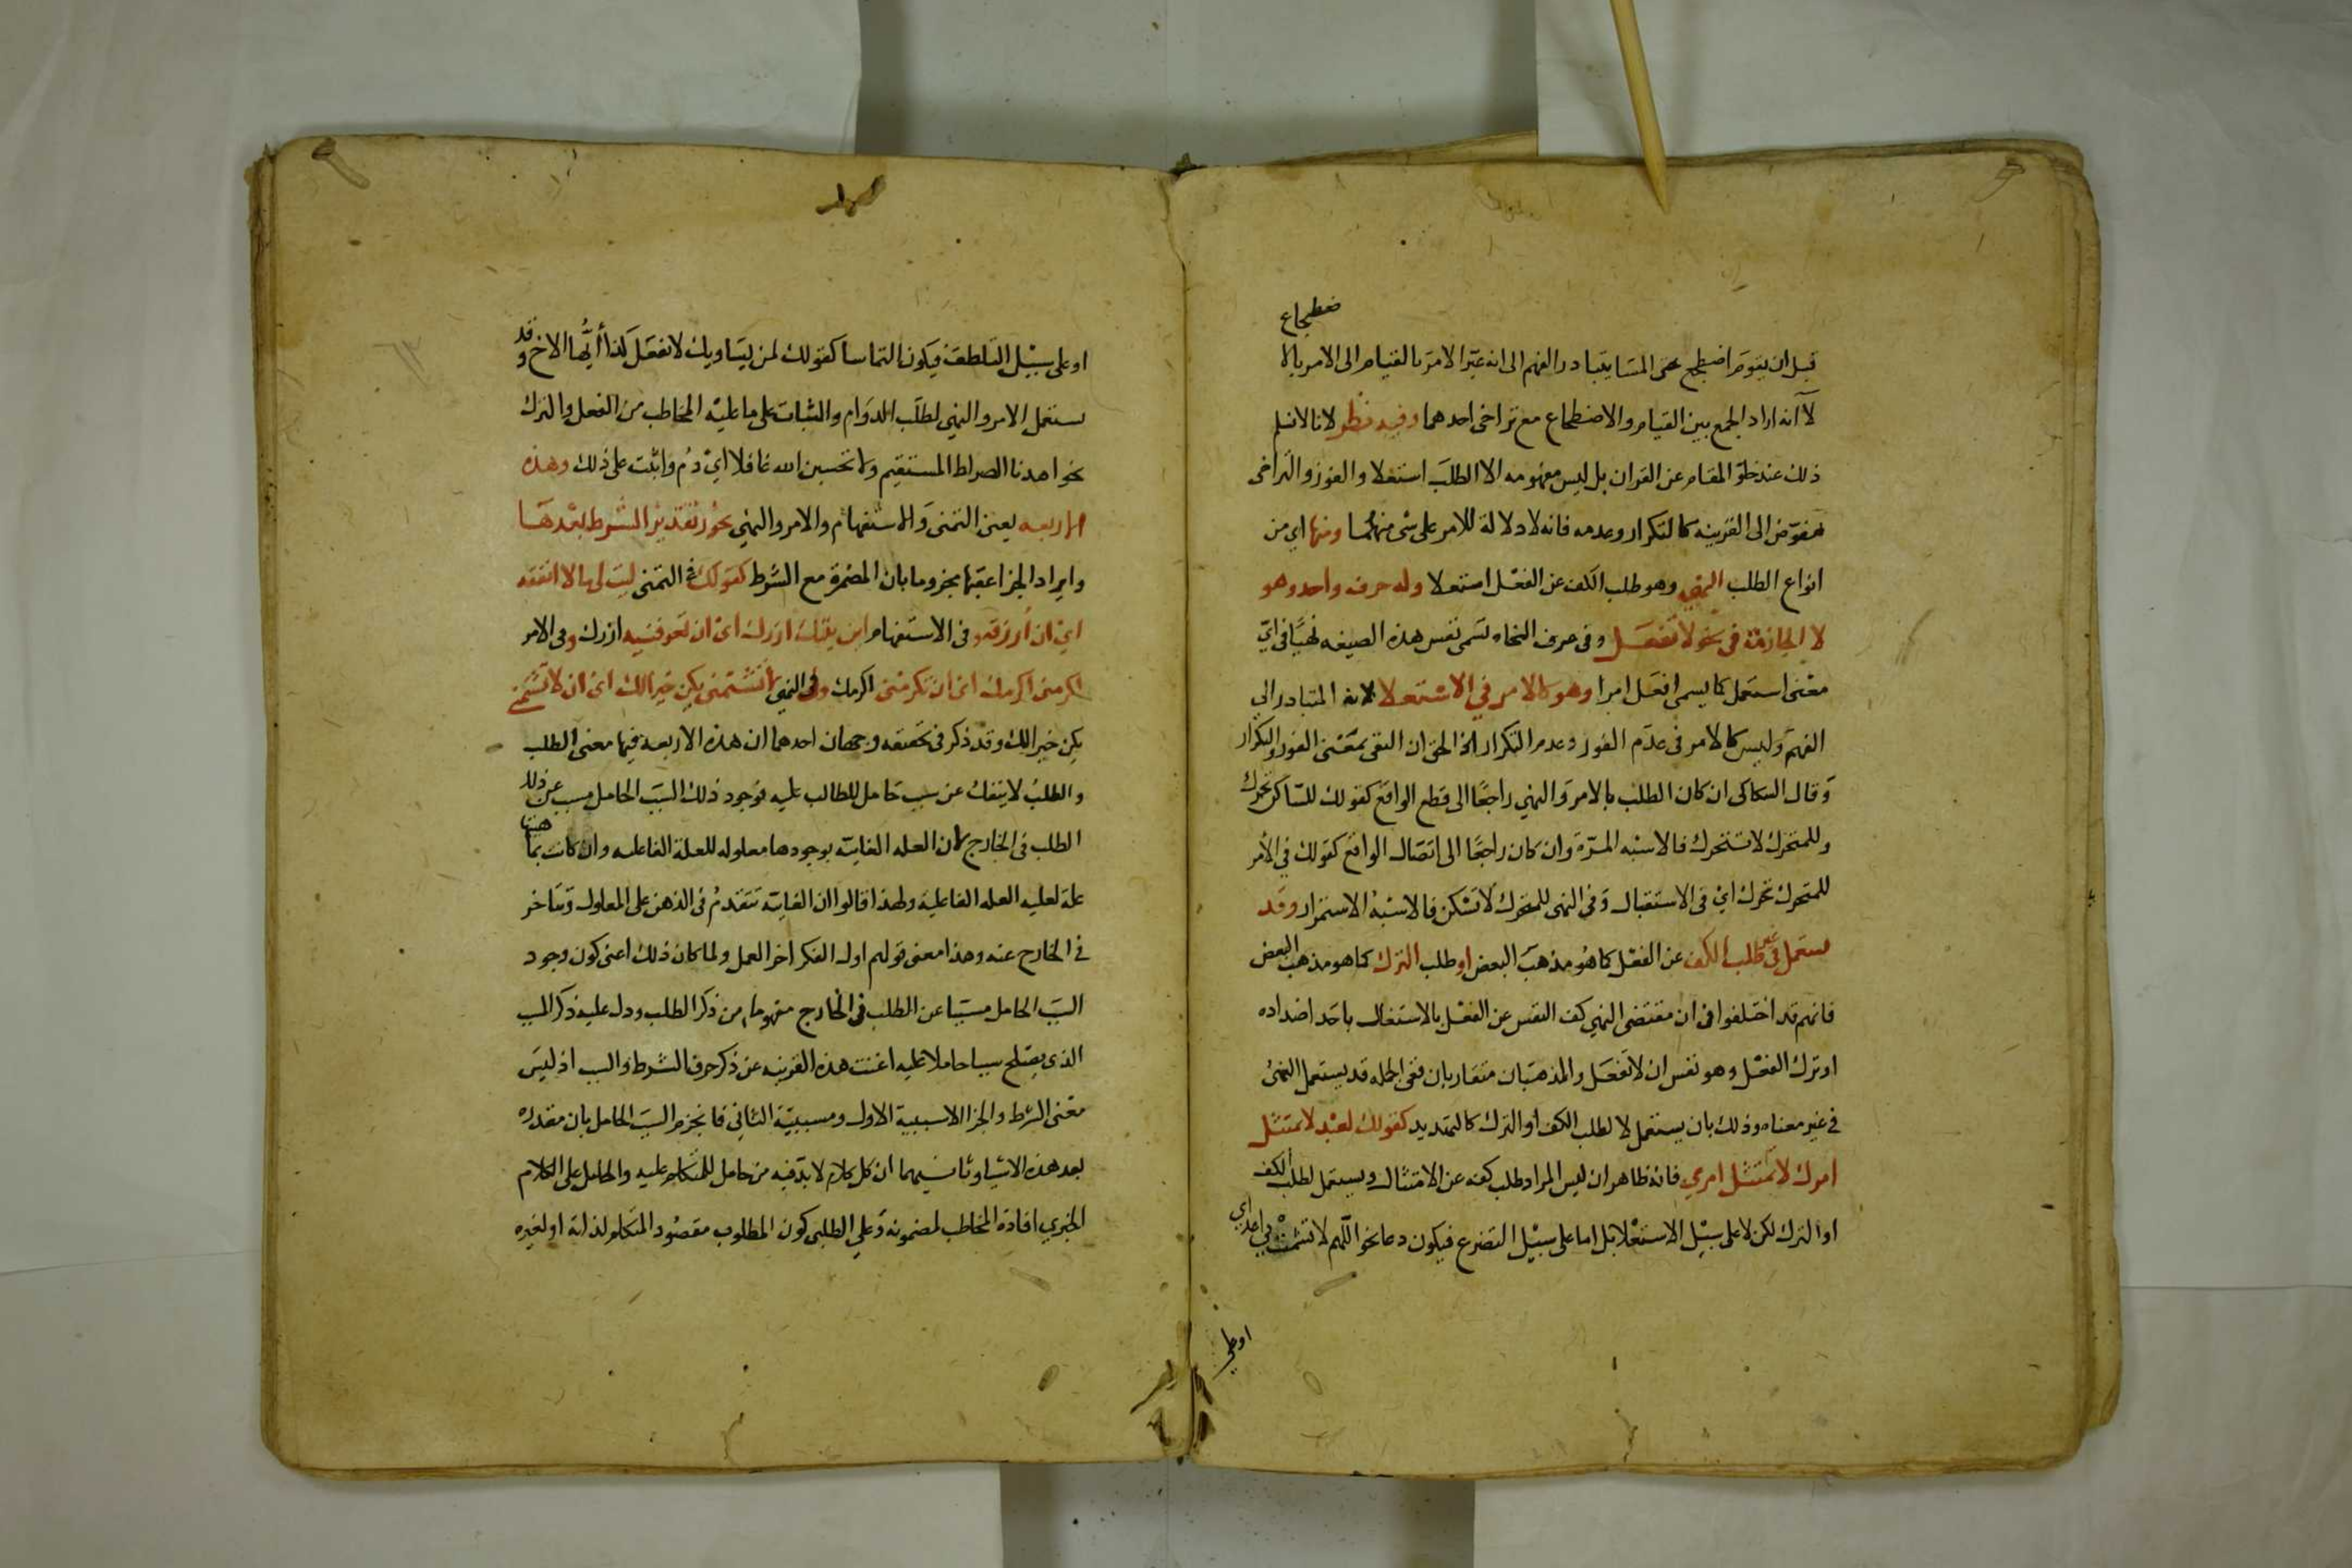 ضطجاع
قبل ان يقوم اضطجع حتى المسا يتبادر الفهم الى انه غير الامر بالقيام الى الامر بالا
لا انه اراد الجمع بين القيام والاضطجاع مع تراخى احدهما وفيه نظر لانا لا نسلم
ذلك عند خلو المقام عن القران بل ليس مفهومه الا الطلب استعلا والفور والتراخى
مفوض الى القرينه كالتكرار وعدمه فانه لا دلالة للامر على شى منهما ومنها اي من
انواع الطلب النهي وهو طلب الكف عن الفعل استعلا وله حرف واحد وهو
لا الجازمة في نحو لا تفعل وفى عرف النحاه تسمى نفس هذه الصيغه نهيًا في اي
معنى استعمل كما يسمى افعل امرا وهو كالامر في الاستعلا لانه المتبادر الى
الفهم وليس كالامر فى عدم الفور وعدم التكرار اذ الحق ان النهى يقتضى الفور والتكرار
وقال السكاكى ان كان الطلب بالامر والنهي راجعًا الى قطع الواقع كقولك للساكن تحرك
وللمتحرك لا تتحرك فالاشبه المرة وان كان راجعًا الى اتصال الواقع كقولك في الامر
للمتحرك تحرك اي فى الاستقبال وفى النهى للمتحرك لا تسكن فالاشبه الاستمرار وقد
يستعمل فى غير طلب الكف عن الفعل كما هو مذهب البعض او طلب الترك كما هو مذهب البعض
فانهم قد اختلفوا فى ان مقتضى النهي كف النفس عن الفعل بالاشتغال باحد اضداده
او ترك الفعل وهو نفس ان لا تفعل والمذهبان متقاربان ففى الجمله قد يستعمل النهى
في غير معناه وذلك بان يستعمل لا لطلب الكف او الترك كالتهديد كقولك لعبد لا يمتثل
امرك لا تمتثل امري فانه ظاهر ان ليس المراد طلب كفه عن الامتثال ويستعمل لطلب الكف
او الترك لكن لا على سبيل الاستعلا بل اما على سبيل التضرع فيكون دعا نحو اللهم لا تشمت بي اعداي
او على
او على سبيل التلطف فيكون التماسا كقولك لمن يساويك لا تفعل كذا أيها الاخ وقد
يستعمل الامر والنهي لطلب الدوام والثبات على ما عليه المخاطب من الفعل والترك
نحو اهدنا الصراط المستقيم ولا تحسبن الله غافلا اي دم واثبت على ذلك وهذه
الاربعه يعنى التمنى والاستفهام والامر والنهي يجوز تقدير الشرط بعدها
وايراد الجزا عقبها مجزوما بان المضمرة مع الشرط كقولك في التمنى ليت لي مالا انفقه
اي ان أرزقه وفى الاستفهام اين بيتك ازرك اي ان تعرفنيه ازرك وفى الامر
اكرمنى اكرمك اى ان تكرمنى اكرمك وفى النهي لا تشتمنى يكن خيرا لك اى ان لا تشتمنى
يكن خيرا لك وقد ذكر فى تحقيقه وجهان احدهما ان هذه الاربعه فيها معنى الطلب
والطلب لا ينفك عن سبب حامل للطالب عليه فوجود ذلك السبب الحامل مسبب عن ذلك
الطلب فى الخارج لان العله الغايية بوجودها معلوله للعلة الفاعليه وان كانت بماهيتها
علة لعليه العله الفاعلية ولهذا قالوا ان الغاية تتقدم فى الذهن على المعلول وتتاخر
فى الخارج عنه وهذا معنى قولهم اول الفكر اخر العمل ولما كان ذلك اعنى كون وجود
السبب الحامل مسببا عن الطلب فى الخارج مفهوما من ذكر الطلب ودل عليه ذكر المسبب
الذي يصلح سببا حاملا عليه اغنت هذه القرينه عن ذكر حرف الشرط والسبب اذ ليس
معنى الشرط والجزا الا سببية الاول ومسببية الثاني فانجزم السبب الحامل بان مقدره
بعد هذه الاشيا وثانيهما ان كل كلام لا بد فيه من حامل للمتكلم عليه والحامل على الكلام
الخبري افادة المخاطب لمضمونه وعلى الطلبى كون المطلوب مقصود المتكلم لذاته او لغيره